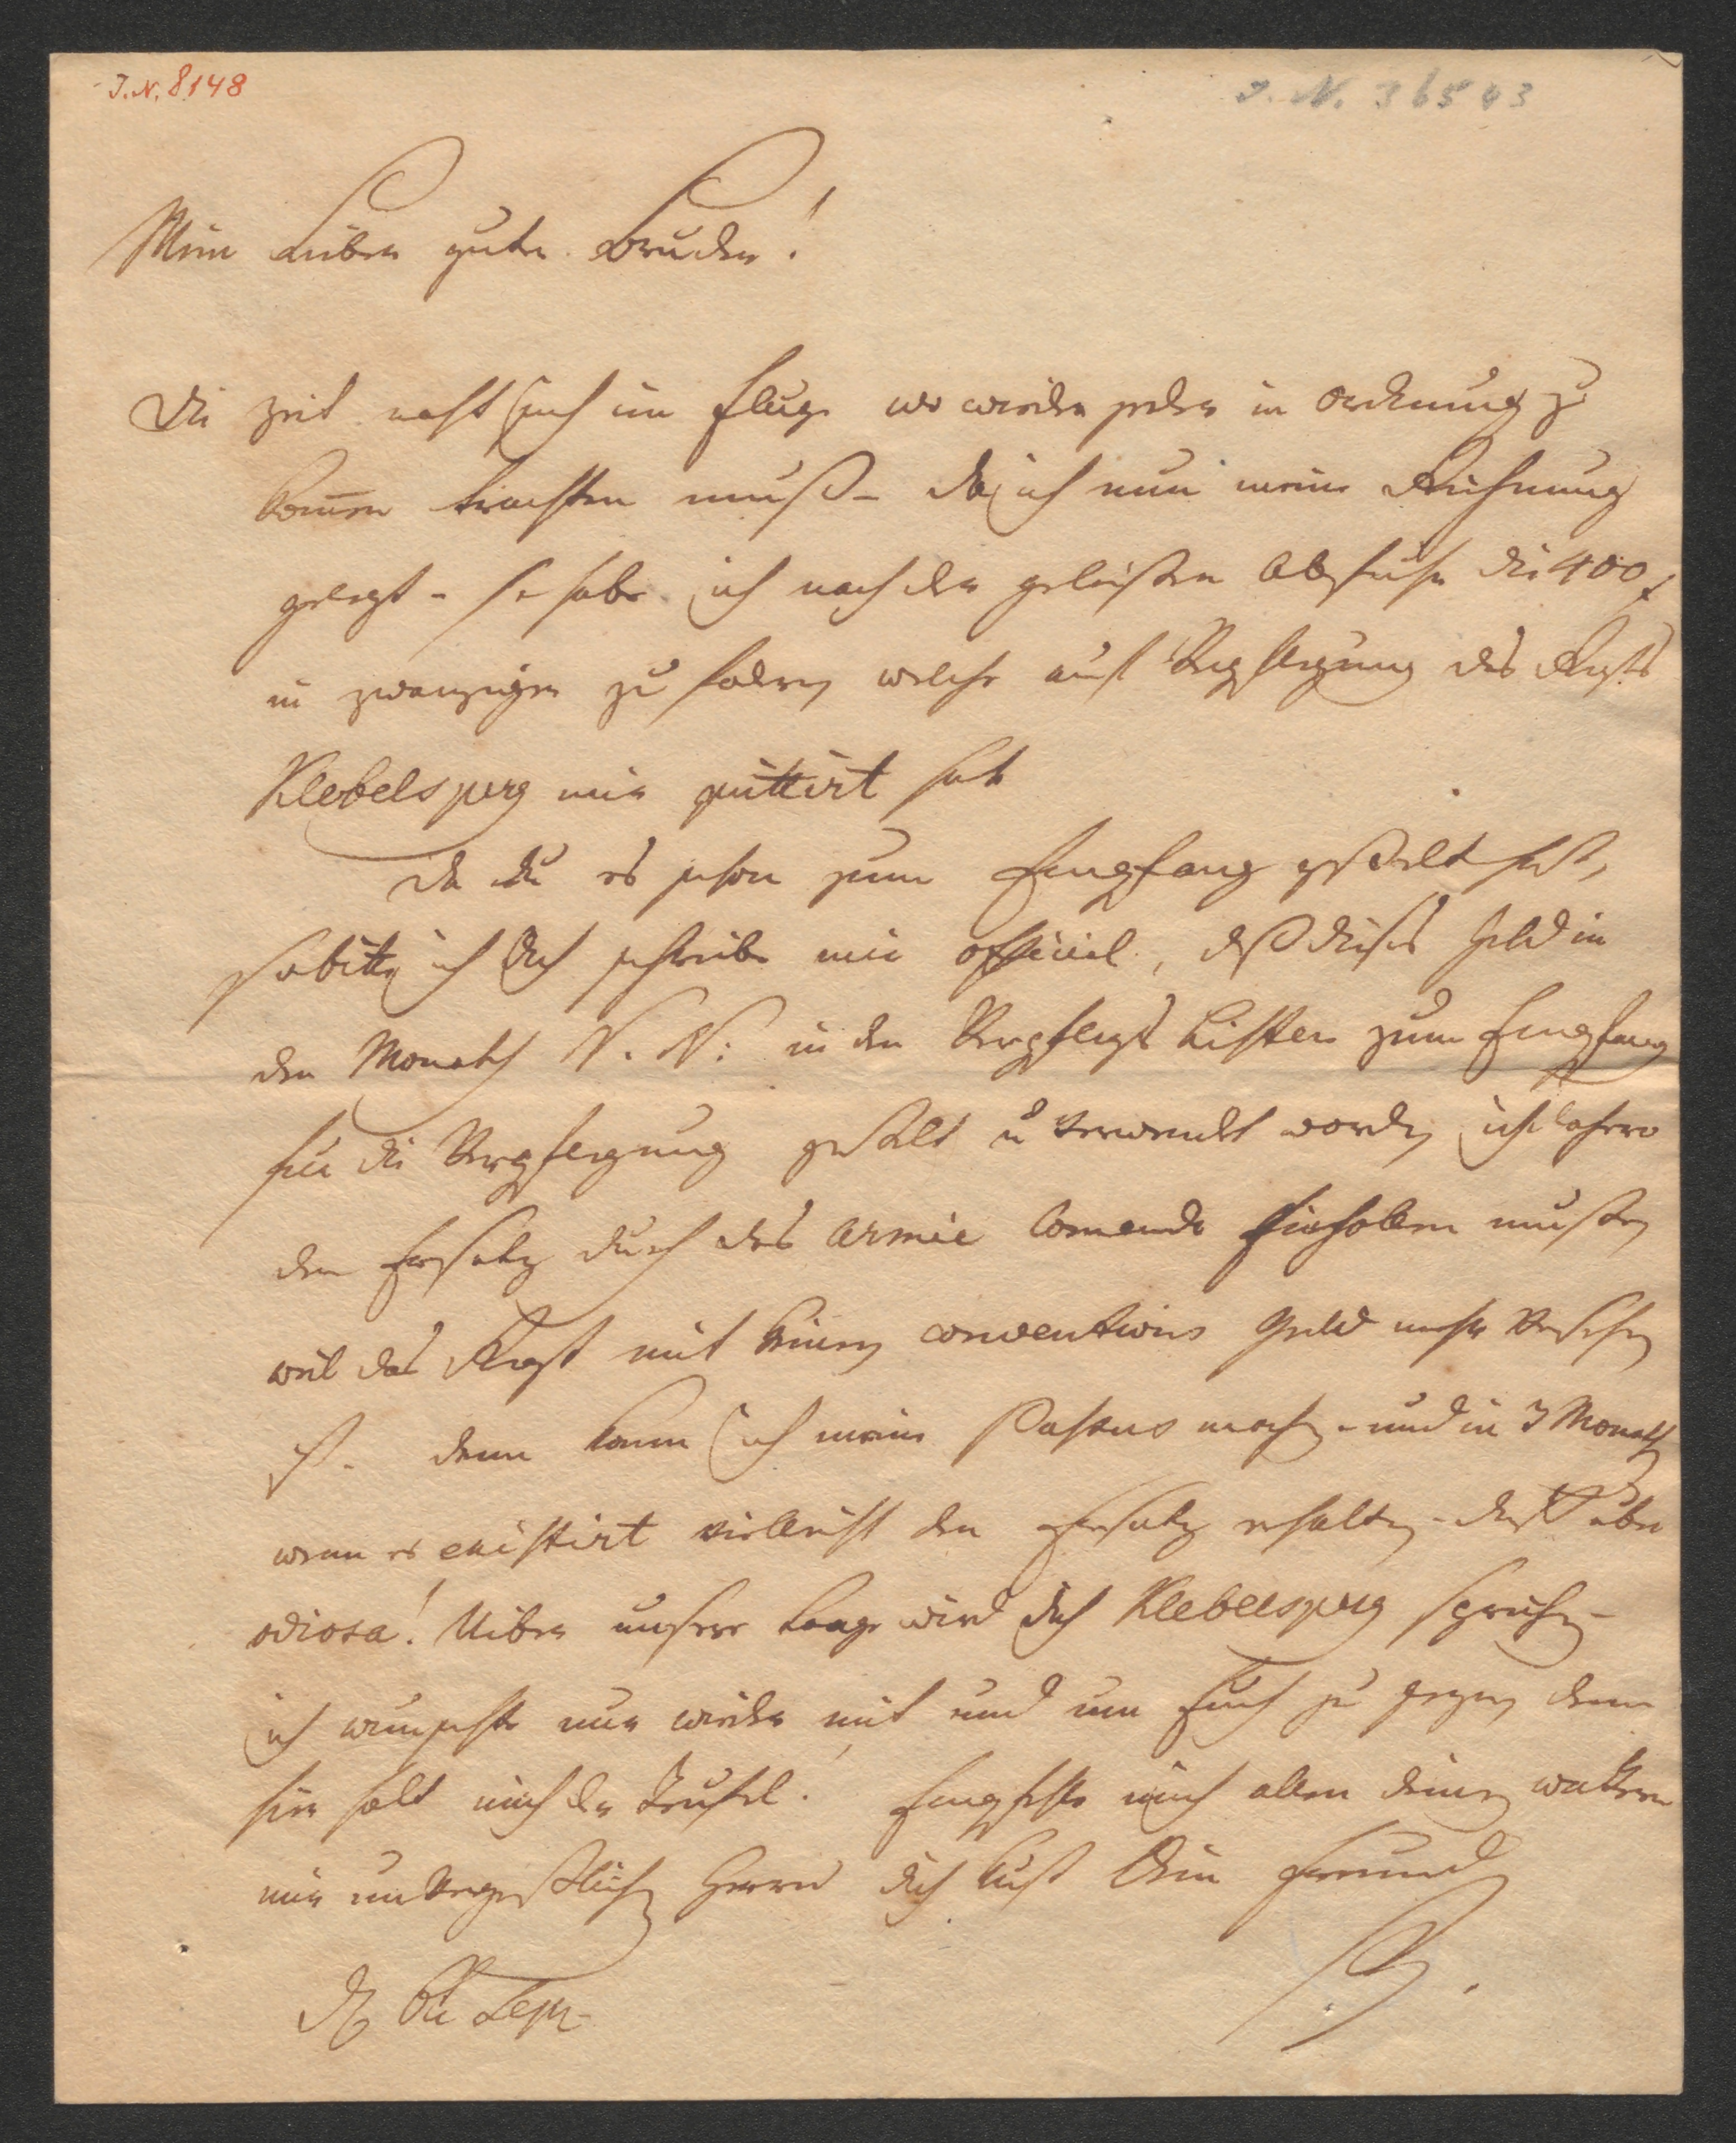 J.N. 8148
J. N. 36543
Mein Lieber guter Bruder!
Die Zeit naht sich im Fluge wo wieder jeder in Ordnung zu
komen trachten muß – da ich nun meine Rechnung
gelegt – so habe ich nach der geleisten Abfuhr die 400 f
in zwanziger zu fodern welche auf Verpflegung des Regts
Klebelsperg mir quittirt hat
Da du es schon zum Empfang gestelt hast,
so bitte ich dich schreibe mir officiel, daß dieses Geld in
den Monath N. N: in den Verpflegs Listen zum Empfang
für die Verpflegung gestelt u verwendet worden ich dahero
den Ersatz durch das Armée Comando einhollen mußte,
weil das Regt mit keinen Conventions Geld mehr versehen
ist. dann kann ich meine Passus machen – und in 3 Monath
wenn er existirt vielleicht den Ersatz erhalten – doch aber
odiosa! Uiber unsere Lage wird dich Klebelsperg sprechen –
ich wünschte nur wieder mit und um Euch zu seyn denn
hier holt mich der Teufel! Empfehle mich allen deinen wakern
mir unvergeßlichen Herrn dich küst Dein Freund